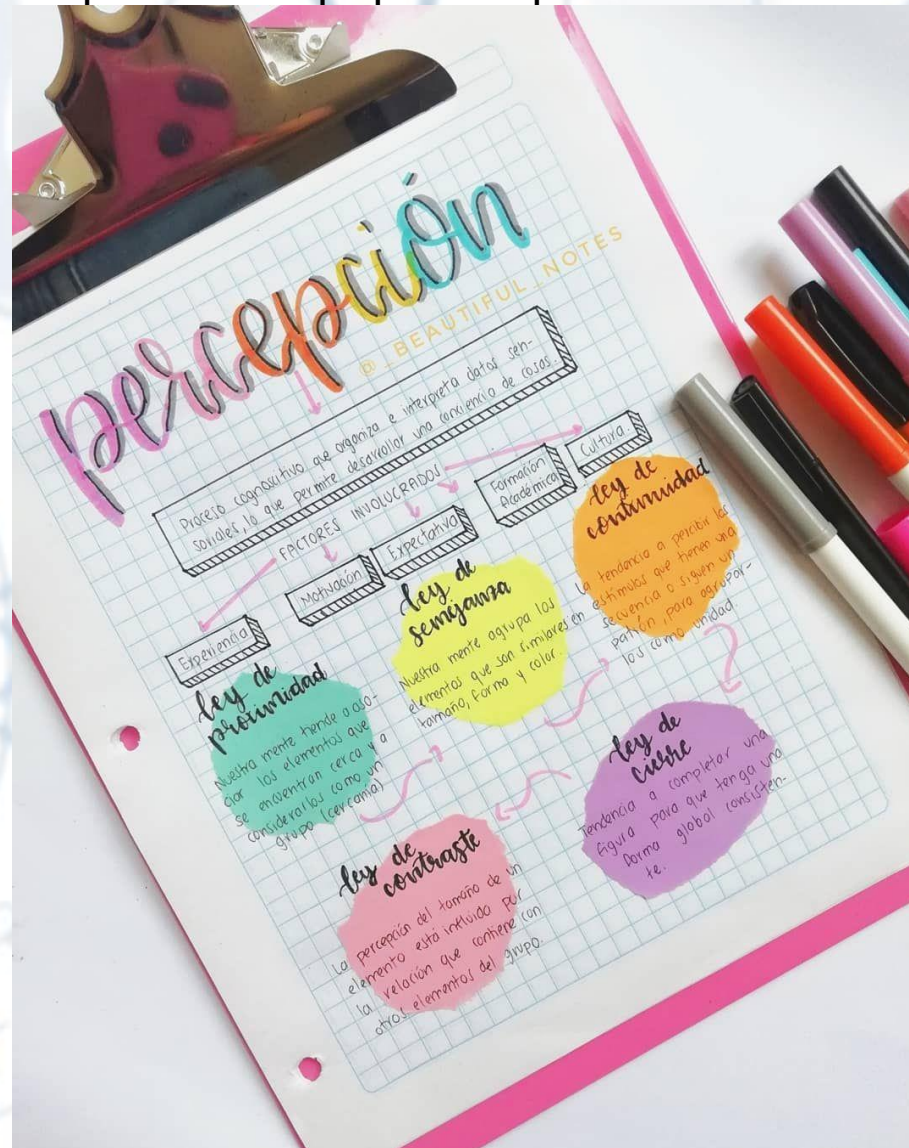 percepción
@_BEAUTIFUL_NOTES
Proceso cognoscitivo que organiza e interpreta datos sen-
soriales, lo que permite desarrollar una conciencia de cosas.
FACTORES INVOLUCRADOS
Experiencia
Motivación
Expectativa
Formación
Académica
Cultura.
ley de
proximidad
Nuestra mente tiende a aso-
ciar los elementos que
se encuentran cerca y a
considerarlos como un
grupo (cercanía)
ley de
semejanza
Nuestra mente agrupa los
elementos que son similares en
tamaño, forma y color.
ley de
continuidad
La tendencia a percibir los
estímulos que tienen una
secuencia o siguen un
patrón, para agrupar-
los como unidad.
ley de
cierre
Tendencia a completar una
figura para que tenga una
forma global consisten-
te.
ley de
contraste
La percepción del tamaño de un
elemento está influido por
la relación que contiene con
otros elementos del grupo.